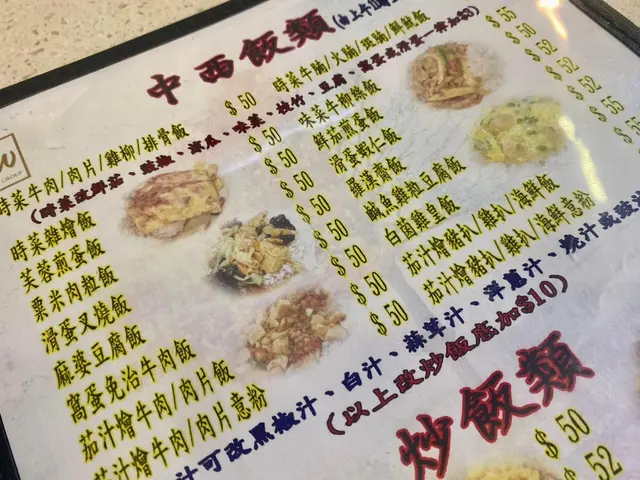 中西飯類
時菜牛肉/肉片/雞柳/排骨飯 $50
時菜牛腩/火腩/斑腩/鮮魷飯 $55
(時菜改鮮茄、豉椒、涼瓜、味菜、枝竹、豆腐、窩蛋或滑蛋一律加$3)
時菜雜燴飯 $50
芙蓉煎蛋飯 $50
粟米肉粒飯 $50
滑蛋叉燒飯 $50
麻婆豆腐飯 $50
窩蛋免治牛肉飯 $50
茄汁燴牛肉/肉片飯 $50
茄汁燴牛肉/肉片意粉 $50
味菜牛柳絲飯 $50
鮮茄煎蛋飯 $52
滑蛋蝦仁飯 $52
羅漢齋飯
鹹魚雞粒豆腐飯
白菌雞皇飯
茄汁燴豬扒/雞扒/海鮮飯
茄汁燴豬扒/雞扒/海鮮意粉
汁可改黑椒汁、白汁、蒜茸汁、洋蔥汁、燒汁或
(以上改炒飯底加$10)
炒飯類
$50
$52
GROUP